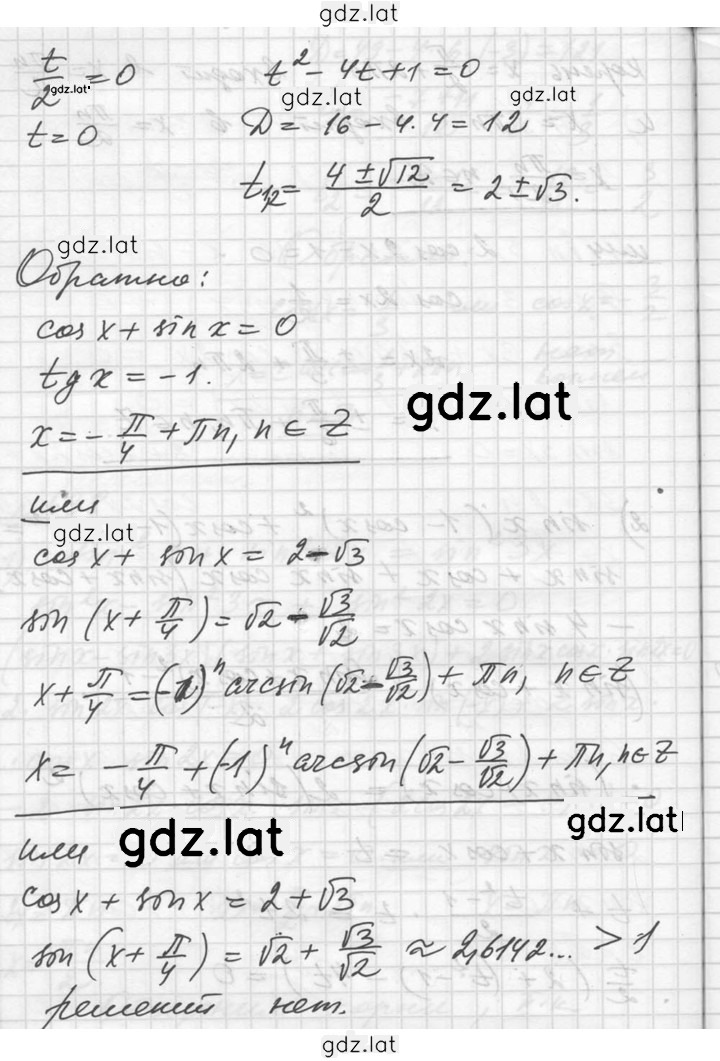 gdz.lat
t/2 = 0 t² - 4t + 1 = 0
gdz.lat gdz.lat gdz.lat
t = 0 D = 16 - 4·4 = 12
t₁,₂ = (4 ± √12)/2 = 2 ± √3.
gdz.lat
Обратно:
cos x + sin x = 0
tg x = -1.
gdz.lat
x = -π/4 + πn, n ∈ Z
или
gdz.lat
cos x + sin x = 2 - √3
sin (x + π/4) = √2 - √3/√2
x + π/4 = (-1)ⁿ arcsin (√2 - √3/√2) + πn, n ∈ Z
x = -π/4 + (-1)ⁿ arcsin (√2 - √3/√2) + πn, n ∈ Z
gdz.lat
или gdz.lat
cos x + sin x = 2 + √3
sin (x + π/4) = √2 + √3/√2 ≈ 2,6142... > 1
решений нет.
gdz.lat